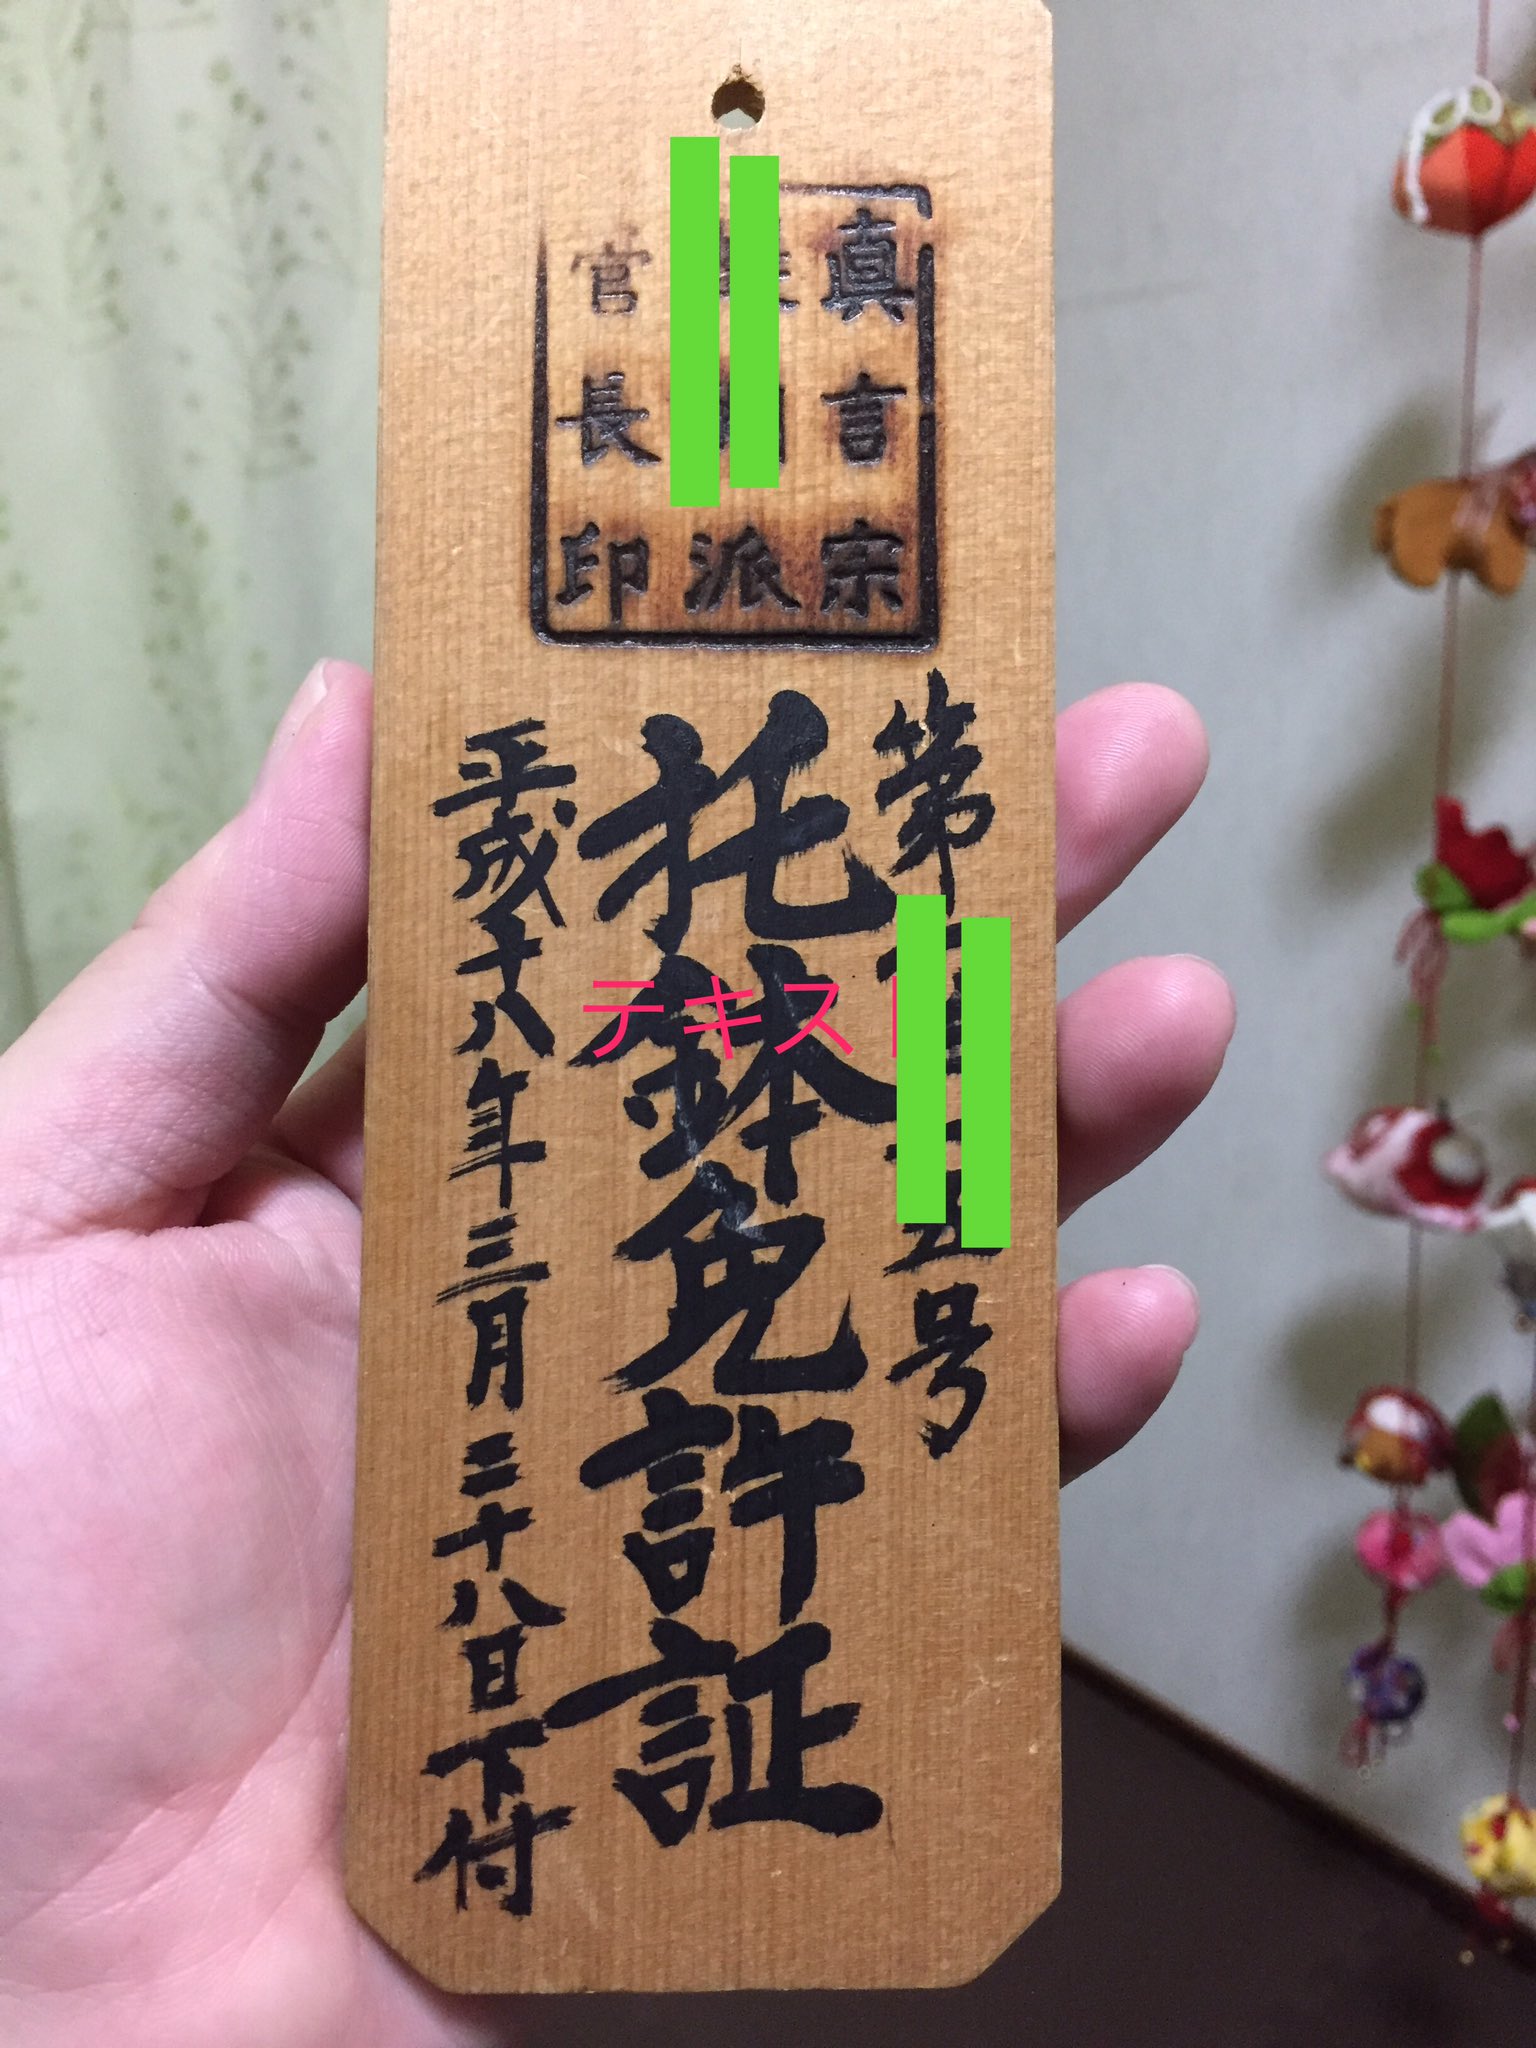 真言宗
派
官長印
第
号
托鉢免許証
平成十八年三月二十八日下付
テキスト